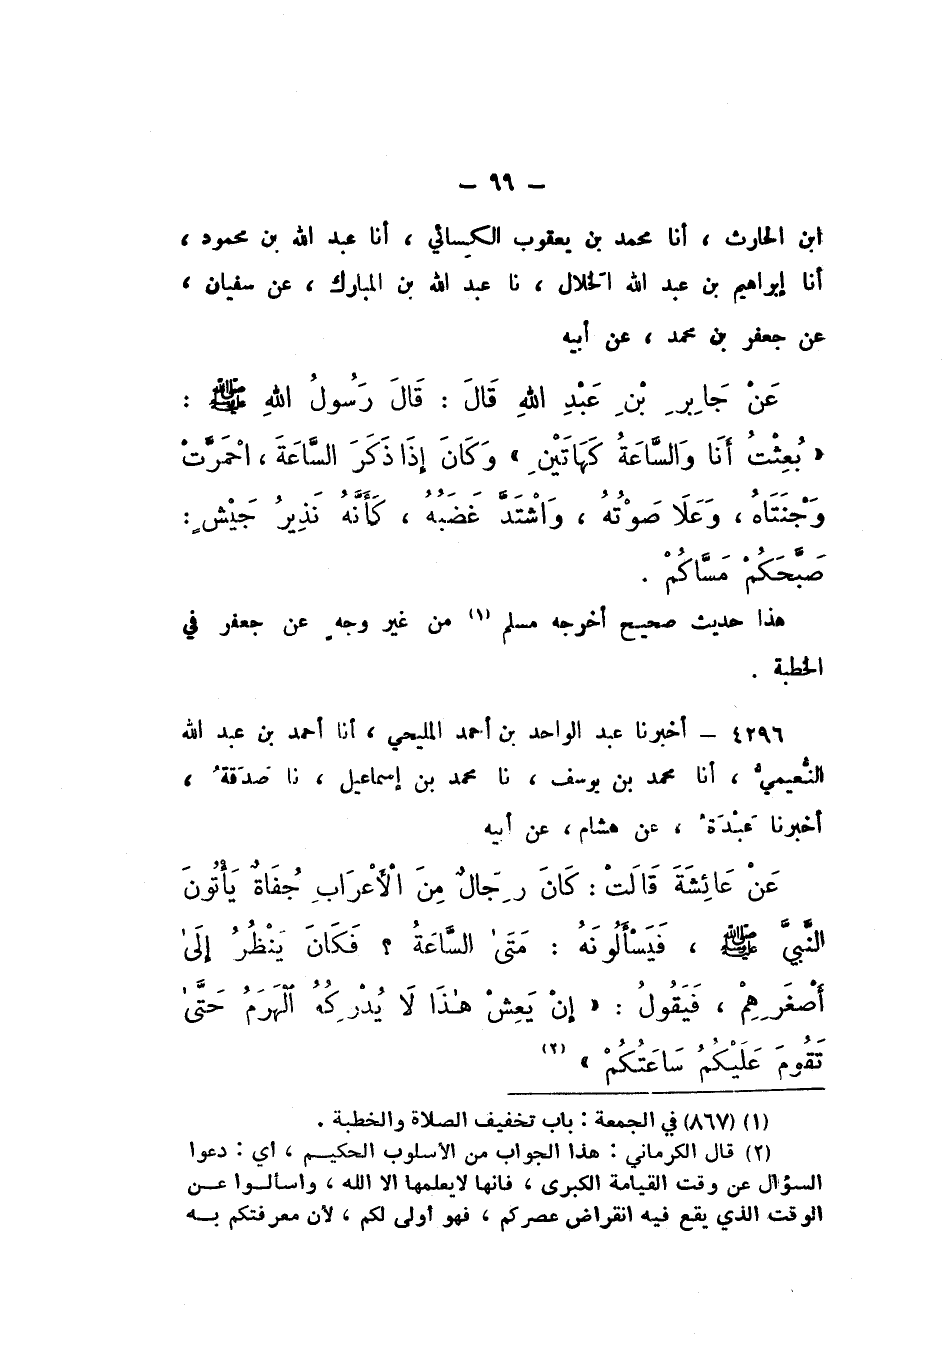 – ٩٩ –
ابن الحارث ، أنا محمد بن يعقوب الكسائي ، أنا عبد الله بن محمود ،
أنا إبراهيم بن عبد الله الخلال ، نا عبد الله بن المبارك ، عن سفيان ،
عن جعفر بن محمد ، عن أبيه
عَنْ جَابِرِ بْنِ عَبْدِ اللهِ قَالَ : قَالَ رَسُولُ اللهِ ﷺ :
« بُعِثْتُ أَنَا وَالسَّاعَةُ كَهَاتَيْنِ » وَكَانَ إِذَا ذَكَرَ السَّاعَةَ ، احْمَرَّتْ
وَجْنَتَاهُ ، وَعَلَا صَوْتُهُ ، وَاشْتَدَّ غَضَبُهُ ، كَأَنَّهُ نَذِيرُ جَيْشٍ :
صَبَّحَكُمْ مَسَّاكُمْ .
هذا حديث صحيح أخرجه مسلم (١) من غير وجهٍ عن جعفر في
الخطبة .
٤٢٩٦ – أخبرنا عبد الواحد بن أحمد المليحي ، أنا أحمد بن عبد الله
النُّعيميُّ ، أنا محمد بن يوسف ، نا محمد بن إسماعيل ، نا صَدَقةُ ،
أخبرنا عَبْدَةُ ، عن هشام ، عن أبيه
عَنْ عَائِشَةَ قَالَتْ : كَانَ رِجَالٌ مِنَ الْأَعْرَابِ جُفَاةٌ يَأْتُونَ
النَّبِيَّ ﷺ ، فَيَسْأَلُونَهُ : مَتَىٰ السَّاعَةُ ؟ فَكَانَ يَنْظُرُ إِلَىٰ
أَصْغَرِهِمْ ، فَيَقُولُ : « إِنْ يَعِشْ هٰذَا لَا يُدْرِكُهُ الْهَرَمُ حَتَّىٰ
تَقُومَ عَلَيْكُمْ سَاعَتُكُمْ » (٢)
(١) (٨٦٧) في الجمعة : باب تخفيف الصلاة والخطبة .
(٢) قال الكرماني : هذا الجواب من الأسلوب الحكيم ، أي : دعوا
السؤال عن وقت القيامة الكبرى ، فانها لايعلمها الا الله ، واسألوا عن
الوقت الذي يقع فيه انقراض عصركم ، فهو أولى لكم ، لأن معرفتكم به